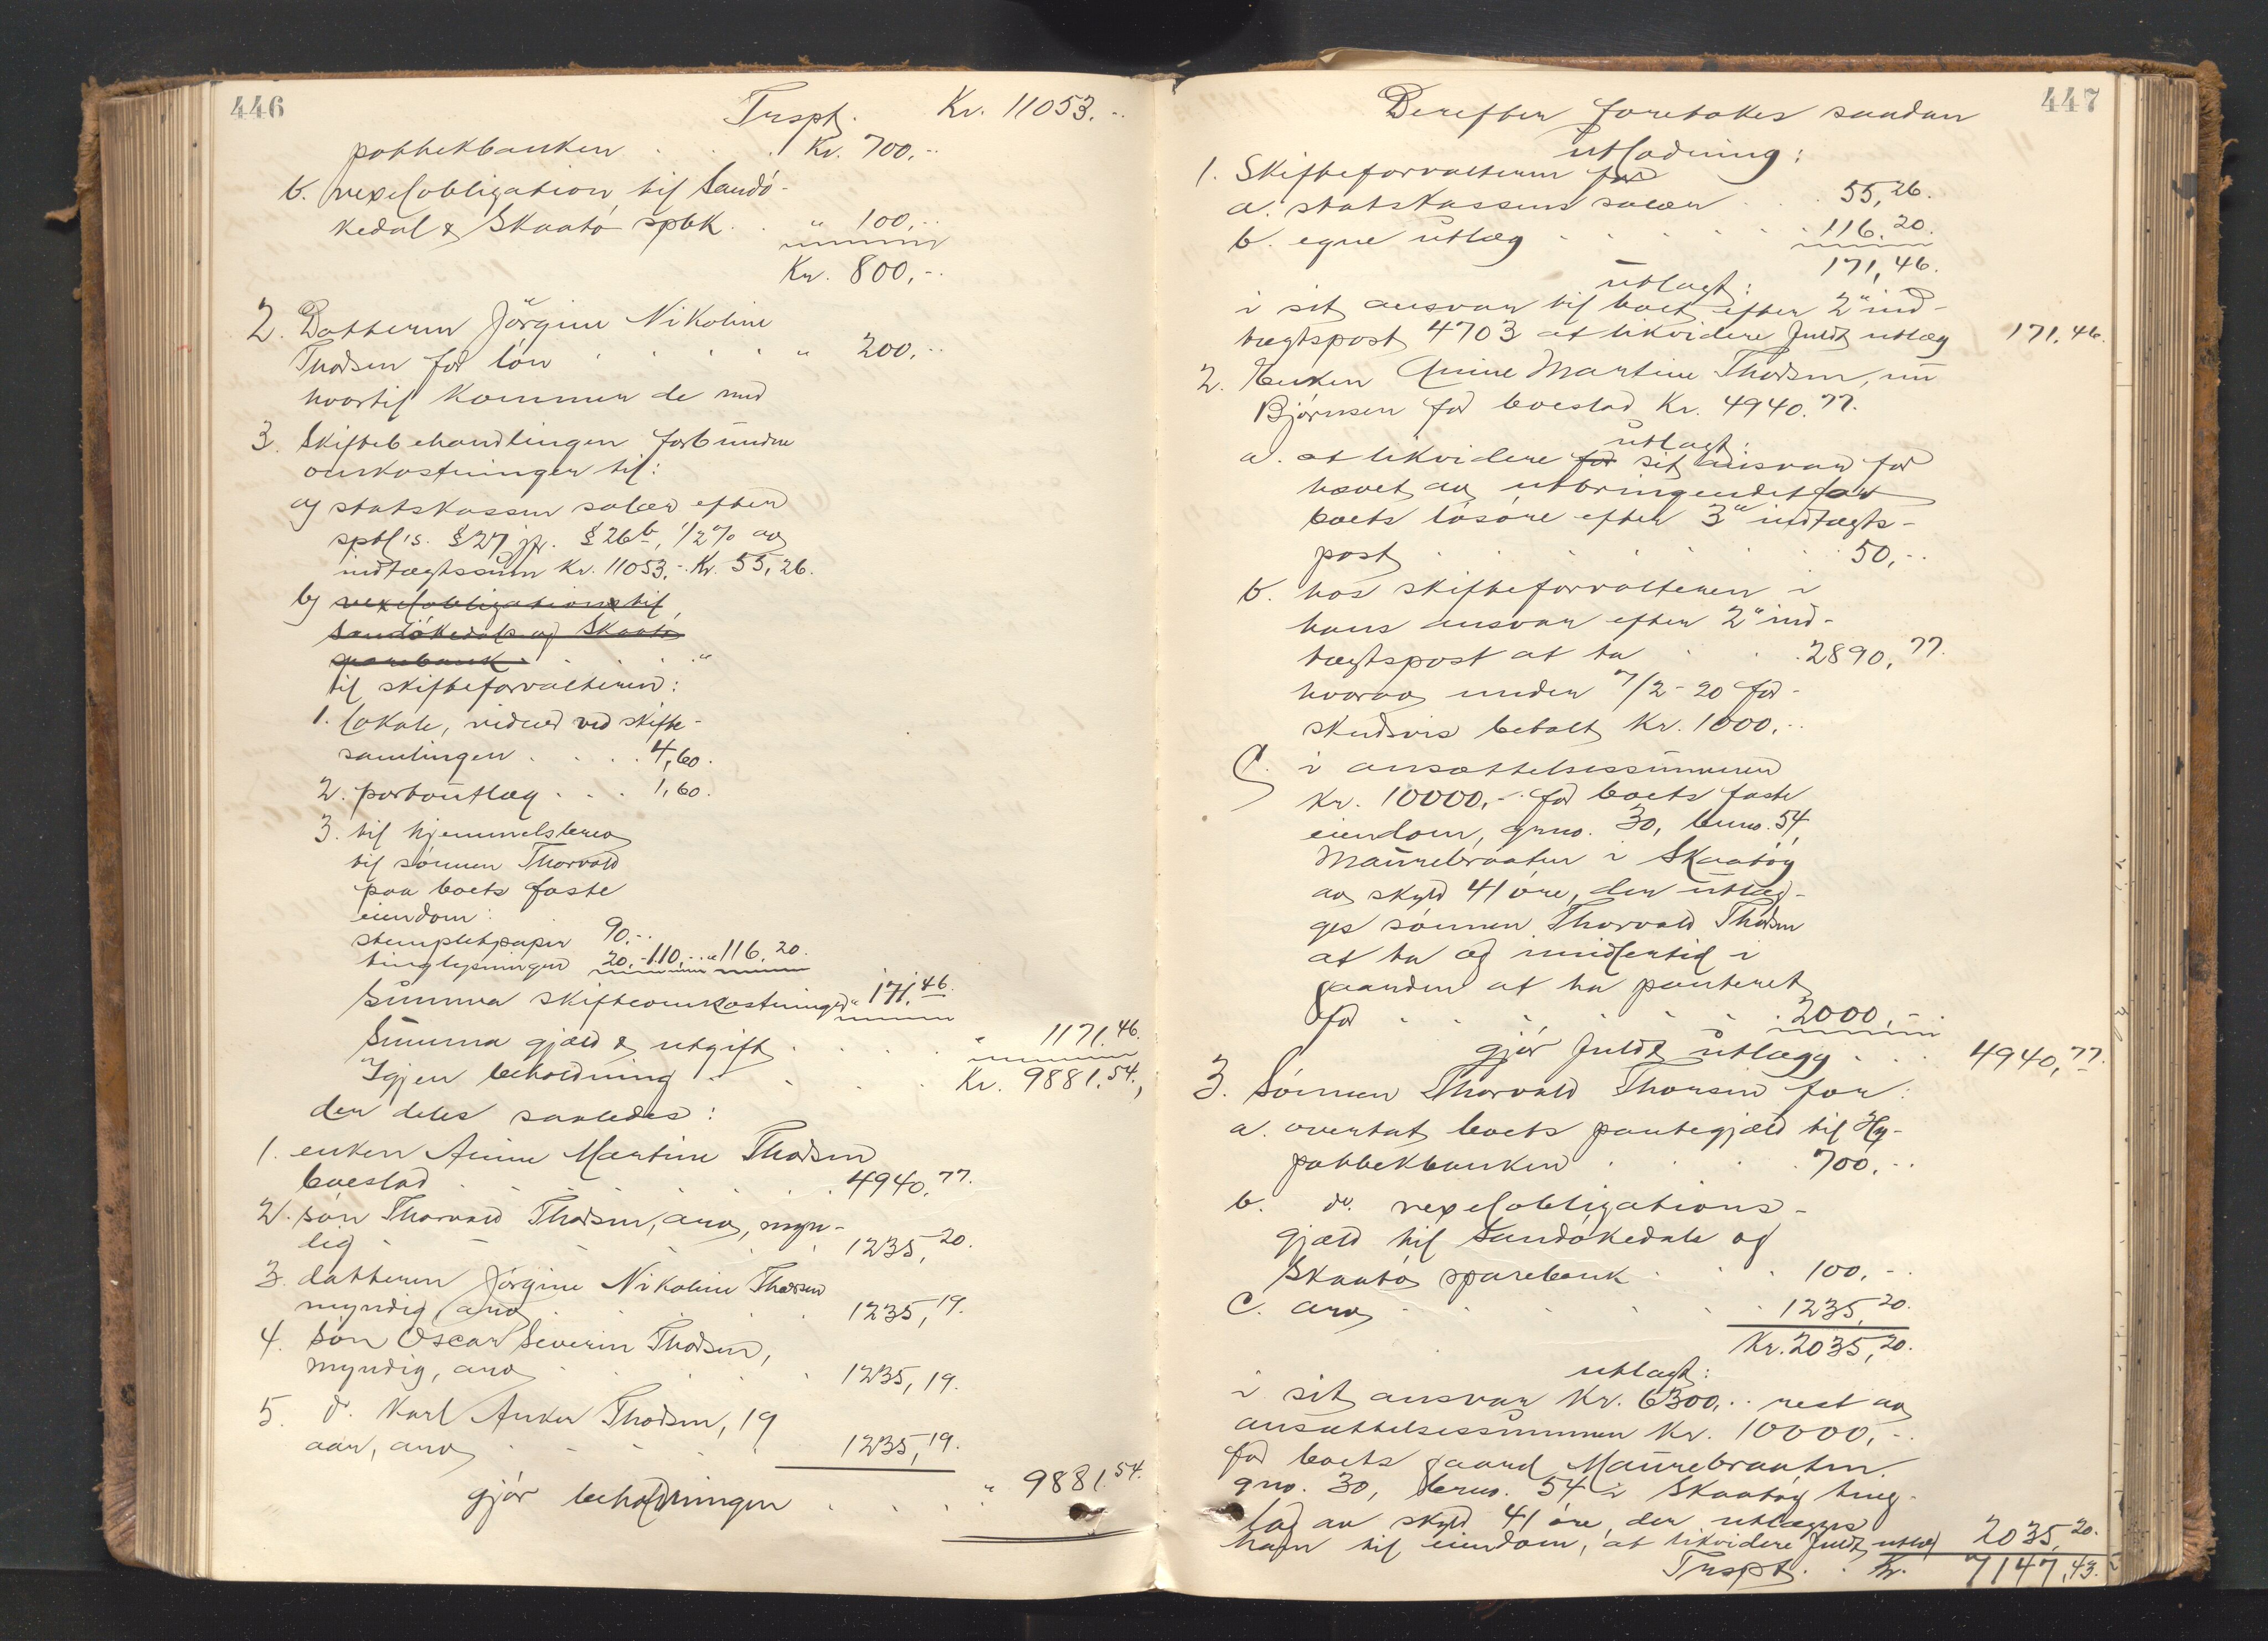 446
Trspt. Kr. 11053.-
pothekbanken . . . Kr. 700,-
b. vexelobligation til Sandö-
kedal & Skaatö spbk. . " 100,-
Kr. 800,-
2. Datteren Jörgine Nikoline
Thorsen for lön . . . . . " 200,-
hvortil kommer de med
3. Skiftebehandlingen forbundne
omkostninger til:
a) statskassen salær efter
sptl's. § 27 jfr. § 26 b, 1/2 % av
indtægtssum Kr. 11053.- Kr. 55,26.
b) vexelobligation til
Sandökedals og Skaatö
sparebank . . . . "
til skifteforvalteren:
1. lokale, vidner ved skifte-
samlingen . . . . 4,60.
2. portoutlæg . . . 1,60.
3. til hjemmelsbrev
til sönnen Thorvald
paa boets faste
eiendom:
stempletpapir 90.-
tinglysningen 20.- 110,- " 116.20.
Summa skifteomkostninger " 171.46.
Summa gjæld & utgift . . . . " 1171.46.
Igjen beholdning . . . . Kr. 9881.54.,
der deles saaledes:
1. enken Anine Martine Thorsen
boeslod . . . . . . . 4940.77.
2. sön Thorvald Thorsen, arv, myn-
dig . . . . . . 1235,20.
3. datteren Jörgine Nikoline Thorsen
myndig, arv . . . . . 1235,19.
4. Sön Oscar Severin Thorsen,
myndig, arv . . . . . 1235,19.
5. do. Karl Anker Thorsen, 19
aar, arv . . . . . 1235,19.
gjör beholdningen . . . . " 9881.54.
447
Derefter foretokes saadan
utlodning:
1. Skifteforvalteren for
a. statskassens salær . . . 55,26.
b. egne utlæg . . . . . . 116.20.
171,46.
utlagt:
i sit ansvar til boet efter 2" ind-
tægtspost 4703 at likvidere fuldt utlæg 171,46.
2. Enken Anine Martine Thorsen, nu
Björnsen for boeslod Kr. 4940.77.
utlagt:
a. at likvidere for sit ansvar for
hævet av utbringendet for
boets lösöre efter 3" indtægts-
post . . . . . . . 50,-
b. hos skifteforvalteren i
hans ansvar efter 2" ind-
tægtspost at ta . . . 2890,77.
hvorav under 7/2-20 for-
skudsvis betalt Kr. 1000.-
c. i ansættelsessummen
Kr. 10000,- for boets faste
eiendom, gno. 30, bruno. 54,
Maurebraaten i Skaatöy
av skyld 41 öre, der utlæg-
ges sönnen Thorvald Thorsen
at ta og imidlertid i
gaarden at ha panteret
for . . . . . . . 2000,-
gjör fuldt utlægg . . . 4940,77.
3. Sönnen Thorvald Thorsen for:
a. overtat boets pantegjæld til Hy-
pothekbanken . . . . 700,-
b. do. vexelobligations-
gjæld til Sandökedals og
Skaatö sparebank . . . 100,-
c. arv . . . . . . 1235,20.
Kr. 2035,20.
utlagt:
i sit ansvar Kr. 6300,- rest av
ansættelsessummen Kr. 10000,-
for boets gaard Maurebraaten
gno. 30, bruno. 54 i Skaatöy ting-
lag av skyld 41 öre, der utlægges
ham til eiendom, at likvidere fuldt utlæg 2035,20.
Trspt. . Kr. 7147,43.